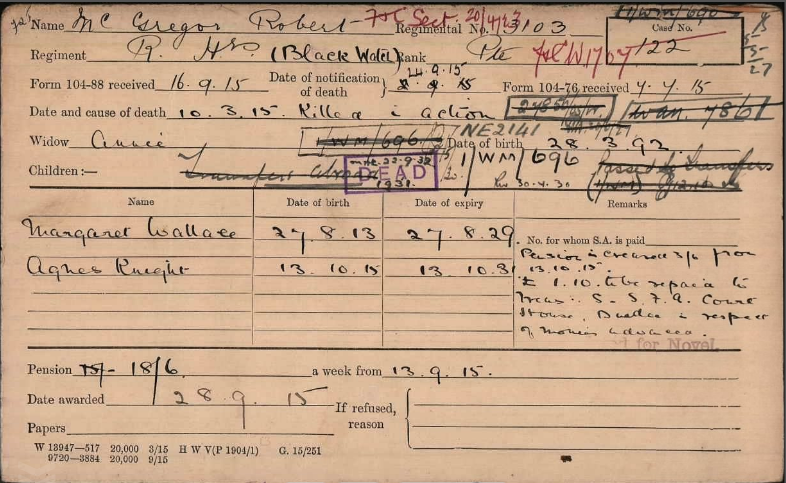 Name Mc Gregor Robert Regimental No. 3103
Case No.
122
Regiment R. Hrs (Black Watch) Rank Pte
Form 104-88 received 16.9.15 Date of notification of death 9.15 Form 104-76 received 7.7.15
Date and cause of death 10.3.15. Killed in action
Widow Annie 1/WM/696 NE2141 Date of birth 28.3.92.
Children:— Transfers DEAD 1931. 1/WM/696 Passed Transfers
30.4.30
Name Date of birth Date of expiry Remarks
Margaret Wallace 27.8.13 27.8.29. No. for whom S.A. is paid
Agnes Knight 13.10.15 13.10.31
Pension increased 3/6 from
13.10.15.
£1.10. to be repaid to
Treas: S.S.F.A. Court
House, Dundee in respect
of monies advanced.
for Novel
Pension 15/- 18/6. a week from 13.9.15.
Date awarded 28.9.15
If refused, reason
Papers
W 13947—517 20,000 3/15 H W V(P 1904/1) G. 15/251
9720—3884 20,000 9/15